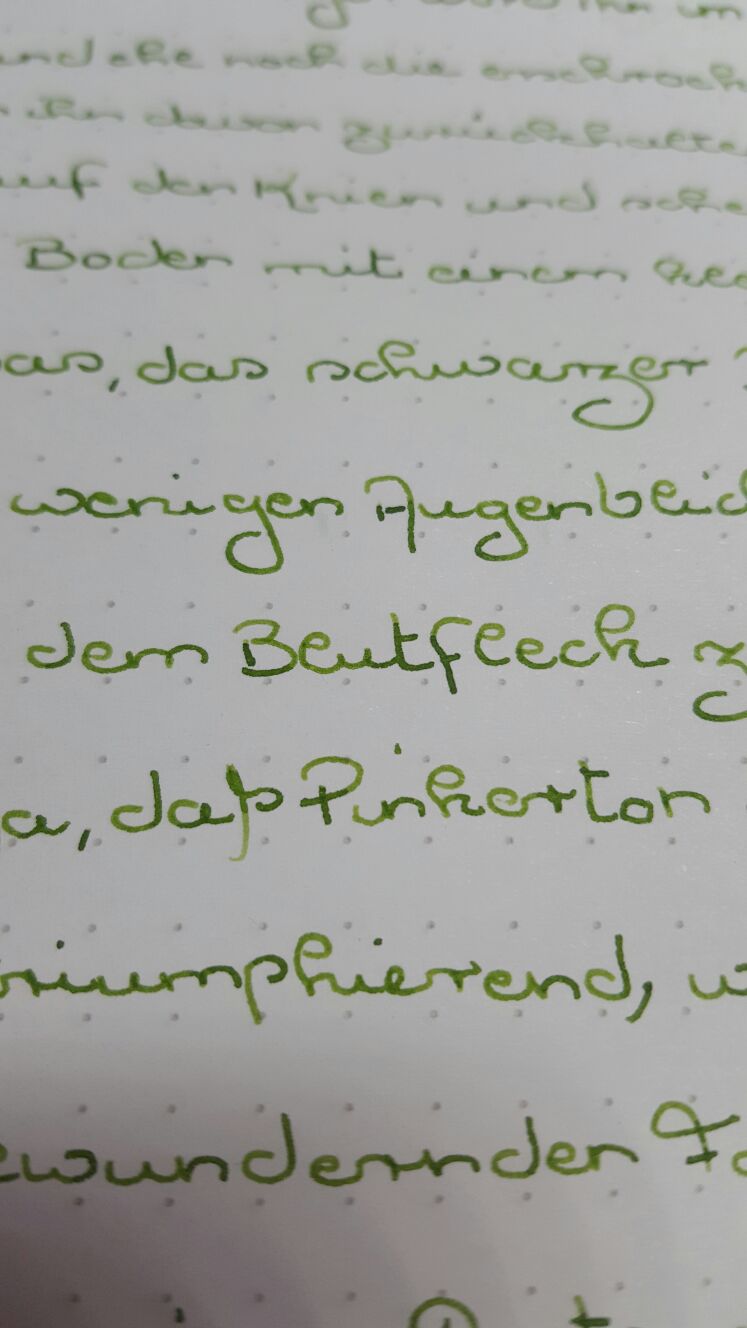 und ehe noch die
ihn davon zurückhalten
auf den Knien und
Boden mit einem
das schwarzer
wenigen Augenblick
dem Blutfleck
daß Pinkerton
triumphierend,
bewundernder